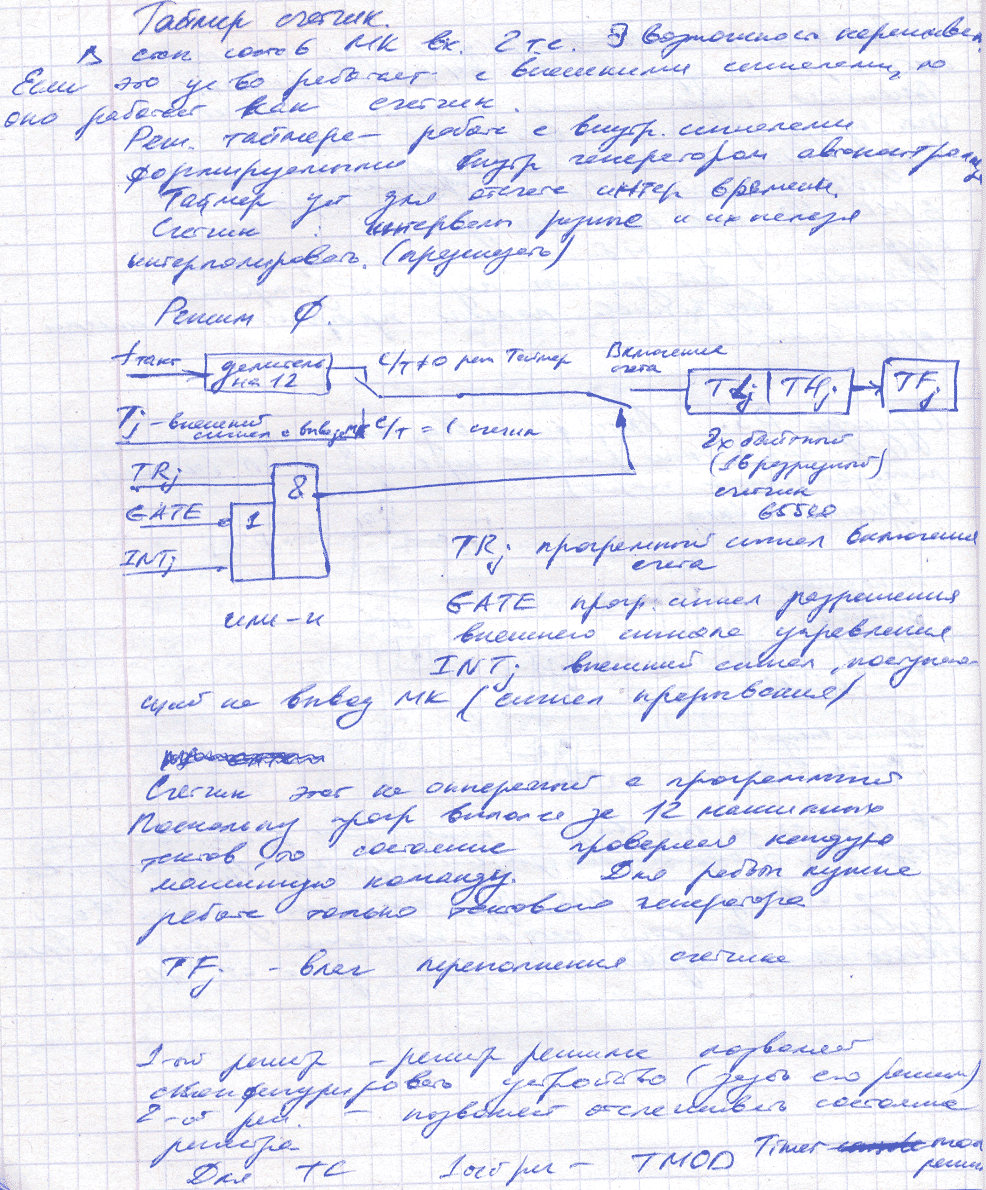 Таймер счетчик.
В стан состав МК вх. 2 т.с. Э возможность
Если это ус-во работает с внешними сигналами, то
оно работает как счетчик.
Реж. таймера – работа с внутр. сигналами
формируемыми внутр генератором
Таймер уст для отсчета интер времени.
Счетчик : интервалы разные и их нельзя
интерполировать. (предсказать)
Режим ф.
fтакт
делитель на 12
C/T = 0 реж Таймер
Включение счета
TLj
THj
TFj
Tj – внешний
сигнал с вывода МК
C/T = 1 счетчик
2х байтный
(16 разрядный)
счетчик
TRj
&
GATE
1
INTj
TRj програмный сигнал включения
счета
или – и
GATE прогр. сигнал разрешения
внешнего сигнала управления
INTj внешний сигнал, поступаю-
щий на вывод МК (сигнал прерывания)
Счетчик этот не аппаратный а програмный
Поскольку прогр за 12 машинных
тактов то состояние проверяем каждую
машинную команду. Для работы нужна
работа только тактового генератора
TFj – флаг переполнения счетчика
1-ый регистр – регистр режима позволяет
сконфигурировать устройство (задать его режим)
2-ой рег. – позволяет отслеживать состояние
регистра
Для ТС 1ый рег – TMOD Timer